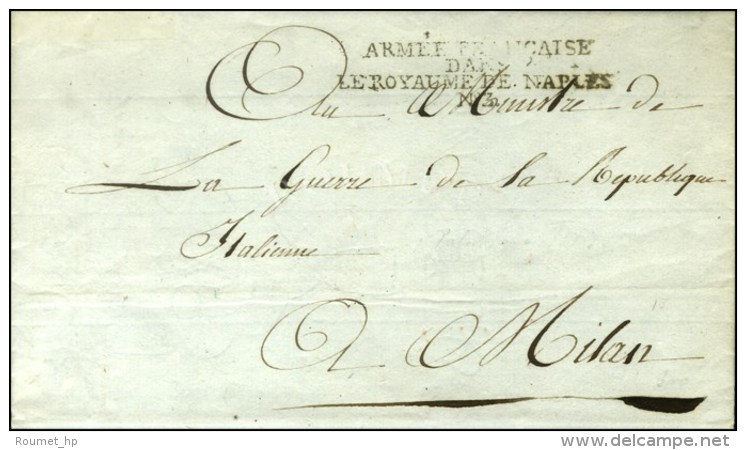 ARMÉE FRANÇAISE
DANS
LE ROYAUME DE NAPLES
N° 3
Au Ministre de
La Guerre de la Republique
Italienne
A Milan
Roumet_hp
www.delcampe.net